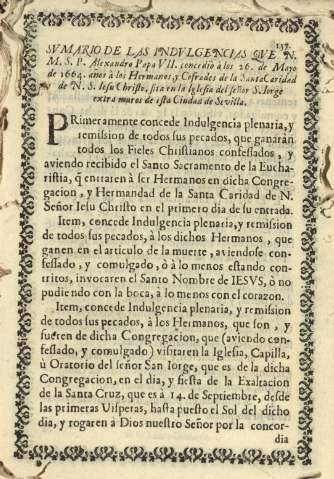 157.
SVMARIO DE LAS INDVLGENCIAS QVE N.
M. S. P. Alexandro Papa VII. concediò à los 26. de Mayo
de 1664. años à los Hermanos, y Cofrades de la Santa Caridad
de N. S. Iesu Christo, sita en la Iglesia del señor S. Jorge
extra muros de esta Ciudad de Sevilla.
PRimeramente concede Indulgencia plenaria, y
remission de todos sus pecados, que ganaràn
todos los Fieles Christianos confessados, y
aviendo recibido el Santo Sacramento de la Eucha-
ristia, q̃ entraren à ser Hermanos en dicha Congre-
gacion, y Hermandad de la Santa Caridad de N.
Señor Iesu Christo en el primero dia de su entrada.
Item, concede Indulgencia plenaria, y remission
de todos sus pecados, à los dichos Hermanos, que
ganen en el articulo de la muerte, aviendose con-
fessado, y comulgado, ò à lo menos estando con-
tritos, invocaren el Santo Nombre de IESVS, ò no
pudiendo con la boca, à lo menos con el corazon.
Item, concede Indulgencia plenaria, y remission
de todos sus pecados, à los Hermanos, que son, y
fueren de dicha Congregacion, que (aviendo con-
fessado, y comulgado) visitaren la Iglesia, Capilla,
ù Oratorio del señor San Iorge, que es de la dicha
Congregacion, en el dia, y fiesta de la Exaltacion
de la Santa Cruz, que es à 14. de Septiembre, desde
las primeras Visperas, hasta puesto el Sol del dicho
dia, y rogaren à Dios nuestro Señor por la concor-
dia